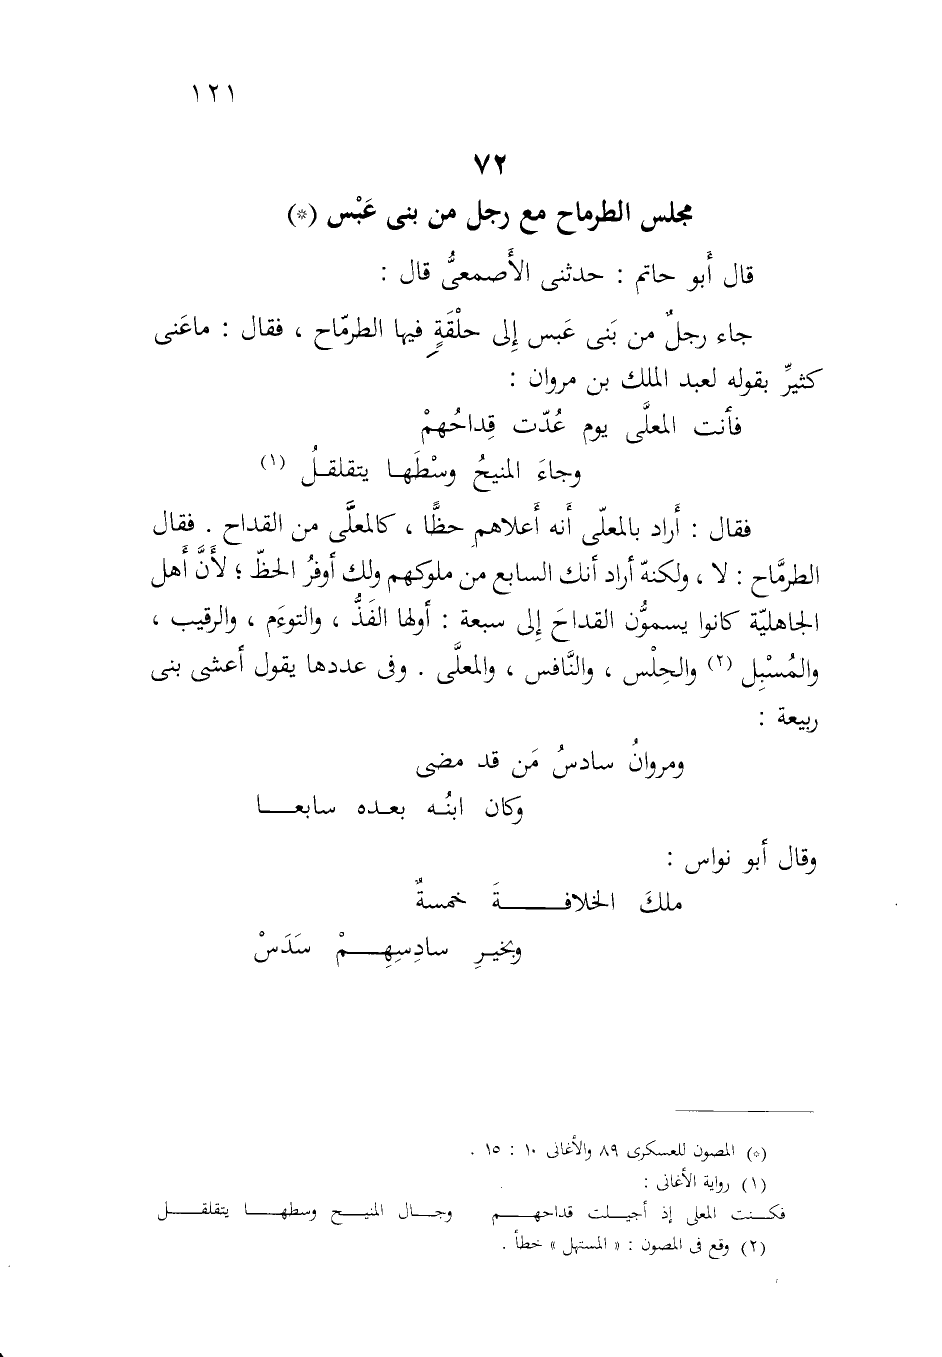 ١٢١
٧٢
مجلس الطرماح مع رجل من بنى عَبْس (*)
قال أَبو حاتم : حدثنى الأَصمعىُّ قال :
جاء رجلٌ من بَنى عَبس إِلى حلْقَةٍ فيها الطرمّاح ، فقال : ماعَنى
كثيرِّ بقوله لعبد الملك بن مروان :
فأنت المعلَّى يوم عُدّت قِداحُهمْ
وجاءَ المنيحُ وسْطَها يتقلقلُ (١)
فقال : أَراد بالمعلّى أَنه أَعلاهم حظًّا ، كالمعلَّى من القداح . فقال
الطرمَّاح : لا ، ولكنهّ أراد أنك السابع من ملوكهم ولك أوفرُ الحظّ ؛ لأَنَّ أَهل
الجاهليّة كانوا يسموُّن القداحَ إِلى سبعة : أولها الفَذُّ ، والتوءَم ، والرقيب ،
والمُسْبِل (٢) والحِلْس ، والنَّافس ، والمعلَّى . وفى عددها يقول أعشى بنى
ربيعة :
ومروانُ سادسُ مَن قد مضى
وكان ابنُه بعده سابعا
وقال أبو نواس :
ملكَ الخلافةَ خمسةٌ
وبخيرِ سادِسِهِمْ سَدَسْ
(*) المصون للعسكرى ٨٩ والأغانى ١٠ : ١٥ .
(١) رواية الأغانى :
فكنت المعلى إذ أجيلت قداحهم وجال المنيح وسطها يتقلقل
(٢) وقع فى المصون : « المستهل » خطأ .